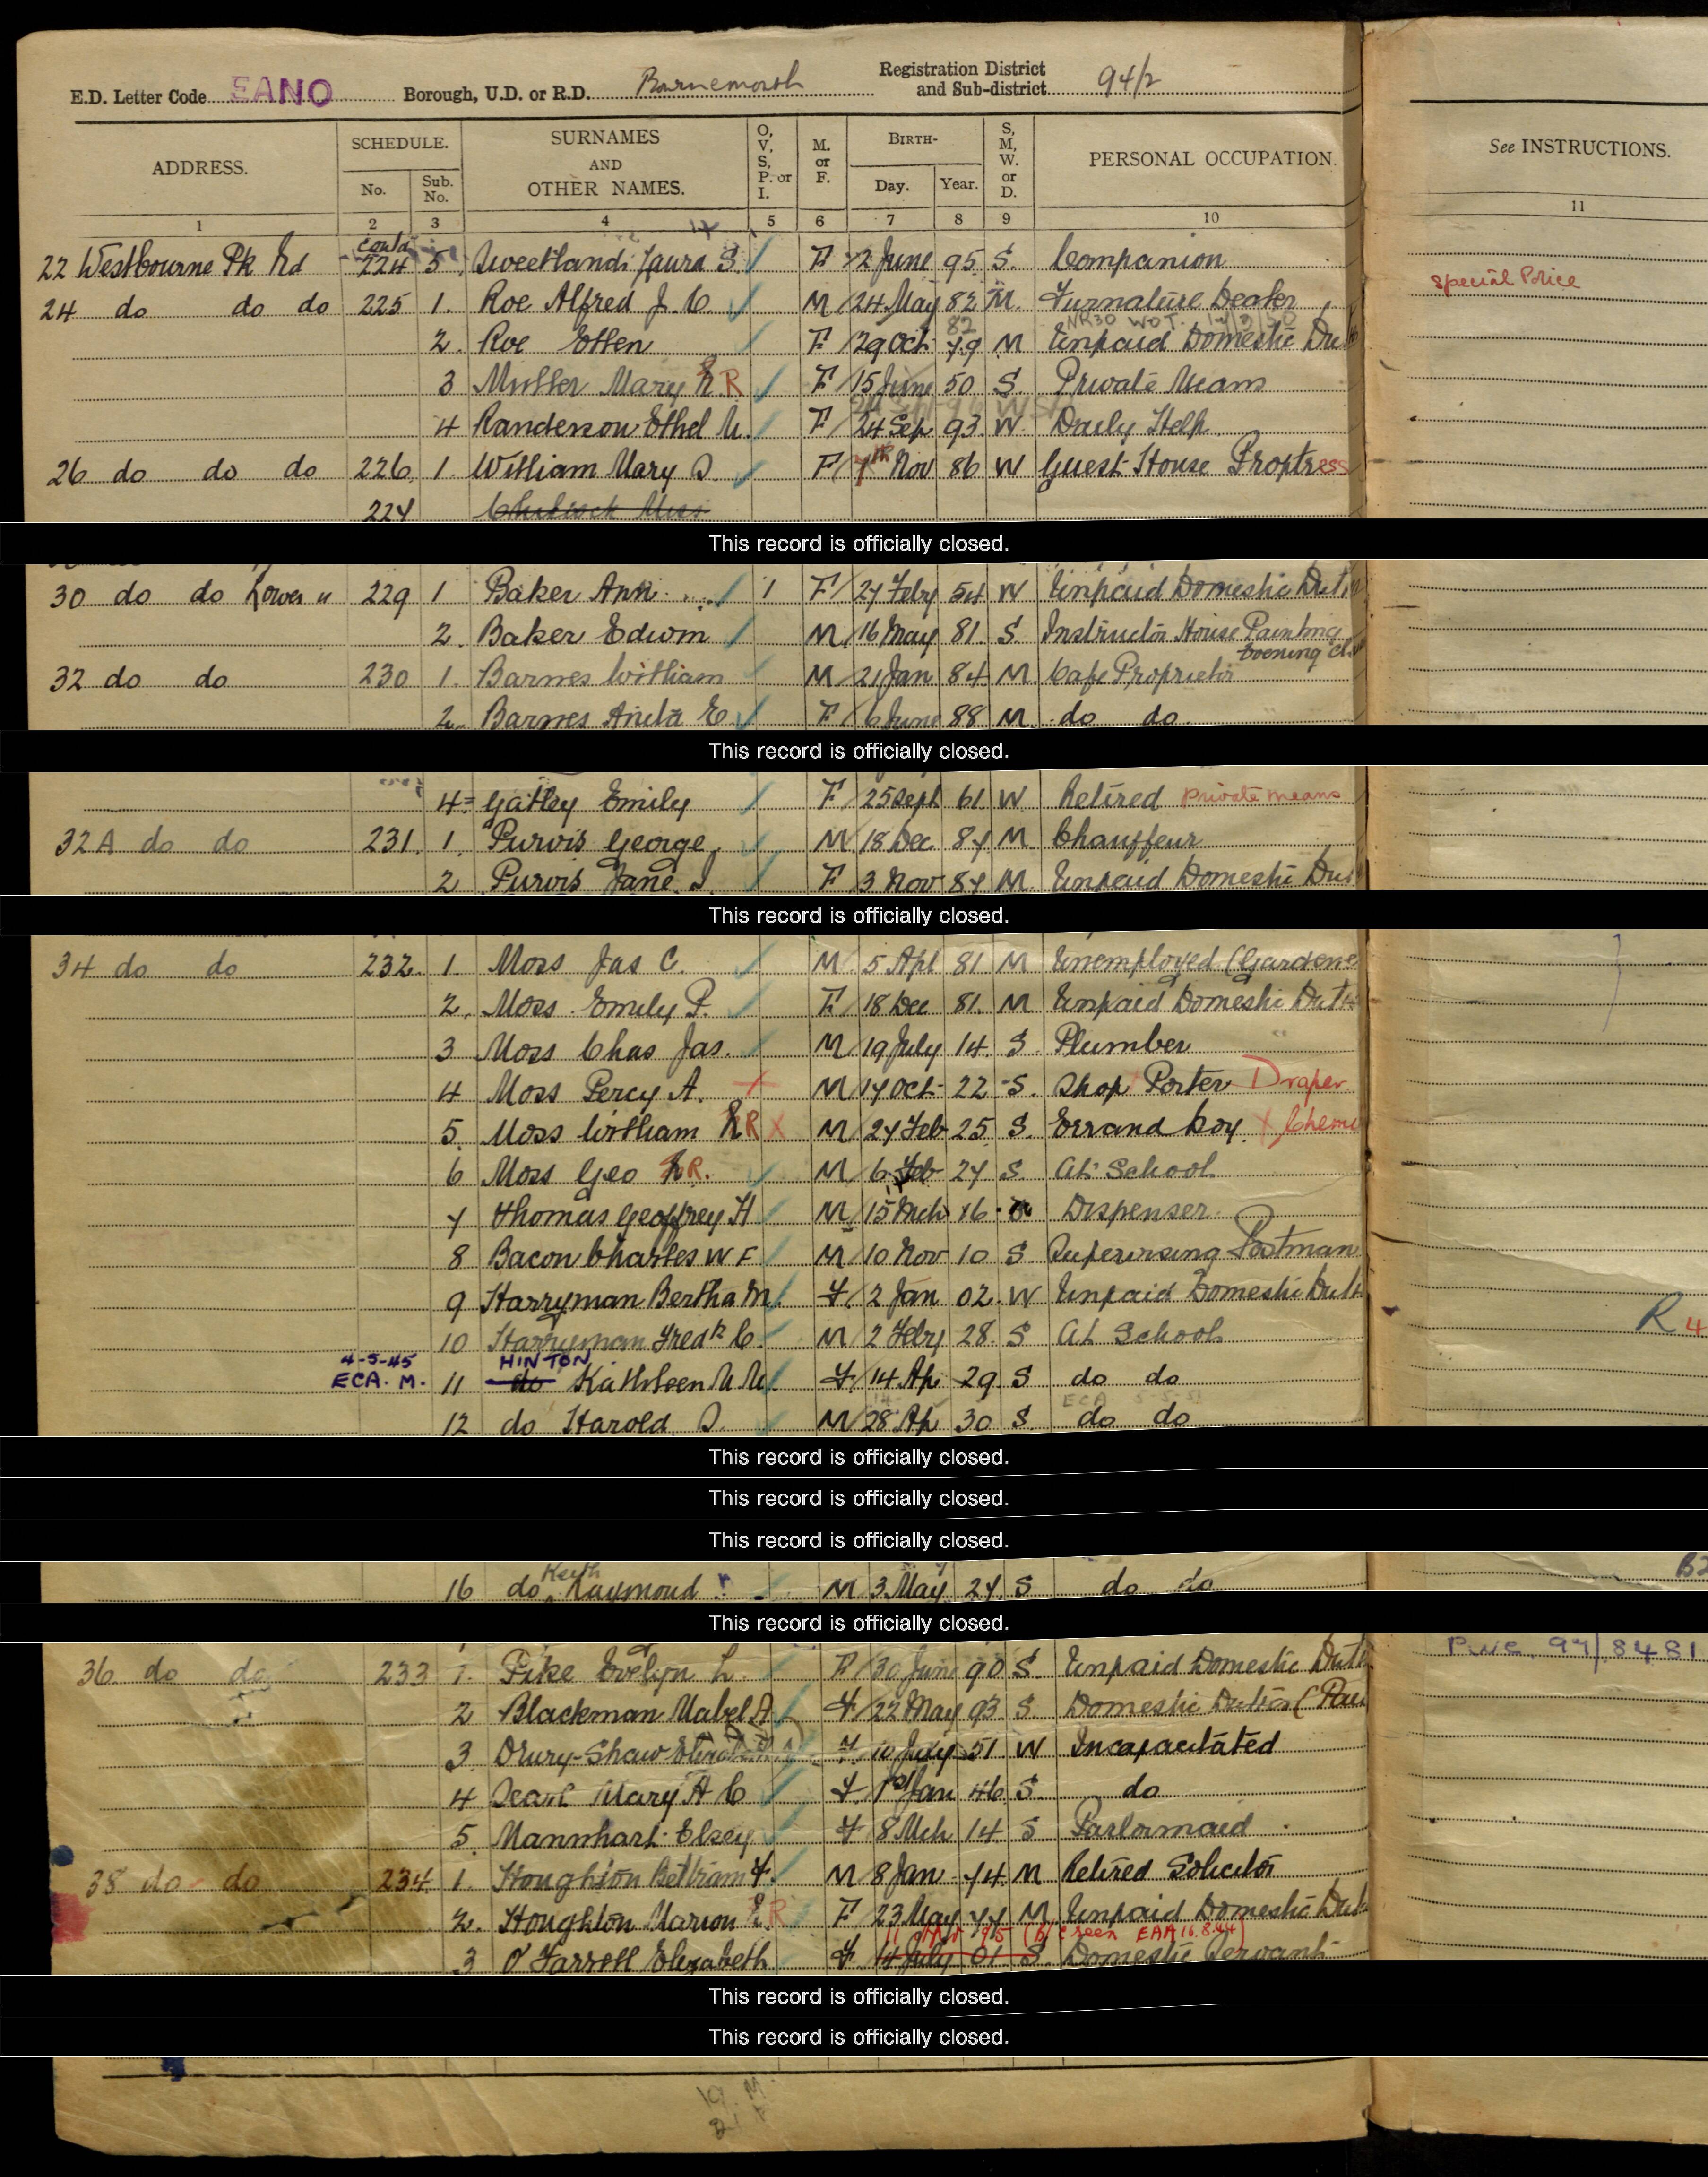 E.D. Letter Code EANO Borough, U.D. or R.D. Bournemouth Registration District and Sub-district 94/2
ADDRESS. SCHEDULE. No. Sub. No. SURNAMES AND OTHER NAMES. O, V, S, P. or I. M. or F. BIRTH- Day. Year. S, M, W. or D. PERSONAL OCCUPATION. See INSTRUCTIONS.
1 2 3 4 5 6 7 8 9 10 11
contd
22 Westbourne Pk Rd 224 5 Sweetland Laura S. F 2 June 95 S. Companion
24 do do do 225 1. Roe Alfred J. C. M 24 May 82 M. Furnature Dealer Special Police
82 NR30
2. Roe Ellen F 29 Oct 79 M Unpaid Domestic Dut
3 Muller Mary R F 15 June 50 S. Private Means
4 Randerson Ethel M. F 24 Sep 93 W. Daily Help
26 do do do 226. 1. William Mary D. F 1st Nov 86 W Guest House Proptress
227 Miss
This record is officially closed.
30 do do Lower 229 1 Baker Ann 1 F 27 Feby 54 W Unpaid Domestic Dut
2. Baker Edwin M 16 May 81. S. Instructor House Painting
Evening Cl
32 do do 230 1. Barnes William M 21 Jan 84 M Cafe Proprietor
2. Barnes Anita E. F 6 June 88 M. do do
This record is officially closed.
4 Gatley Emily F 25 Sept 61 W Retired Private means
32A do do 231. 1. Purvis George M 18 Dec 87 M Chauffeur
2 Purvis Jane I. F 3 Nov 87 M. Unpaid Domestic Dut
This record is officially closed.
34 do do 232. 1. Moss Jas C. M 5 Apl 81 M Unemployed (Gardene
2. Moss Emily P. F 18 Dec 81. M Unpaid Domestic Dut
3 Moss Chas Jas. M 19 July 14. S Plumber
4 Moss Percy A. M 17 Oct 22 S. Shop Porter Draper
5. Moss William R X M 27 Feb 25. S. Errand boy. X Chemi
6 Moss Geo R. M 6 Feb 27 S At School
7 Thomas Geoffrey H M 15 Mch 16 Dispenser
8 Bacon Charles W F M 10 Nov 10 S Supervising Postman
9 Harryman Bertha M. F 2 Jan 02. W Unpaid Domestic Dut R 4
10 Harryman Fredk C. M 2 Feby 28. S At School
4-5-45 HINTON
ECA. M. 11 do Kathleen M M. F 14 Ap 29. S do do
ECA
12 do Harold D. M 28 Ap 30 S. do do
This record is officially closed.
This record is officially closed.
This record is officially closed.
Keith
16 do Raymond M 3 May 27. S do do
This record is officially closed.
36. do do 233 1. Pike Evelyn L. F 30 June 90 S. Unpaid Domestic Dut
2 Blackman Mabel A F 22 May 93. S. Domestic Duties (Pai
3 Drury-Shaw F 10 July 51 W Incapacitated
4 Mary A C F. 1st Jan 46 S. do
5. Mannhart Elsey F 8 Mch 14 S Parlormaid
38 do do 234 1. Houghton Bertram F. M 8 Jan 74. M Retired Solicitor
2. Houghton Marion R F 23 May 77 M. Unpaid Domestic Dut
95 (B/C seen EAA 16.8.44)
3 O'Farrell Elizabeth F 4 July 01 S. Domestic Servant
This record is officially closed.
This record is officially closed.